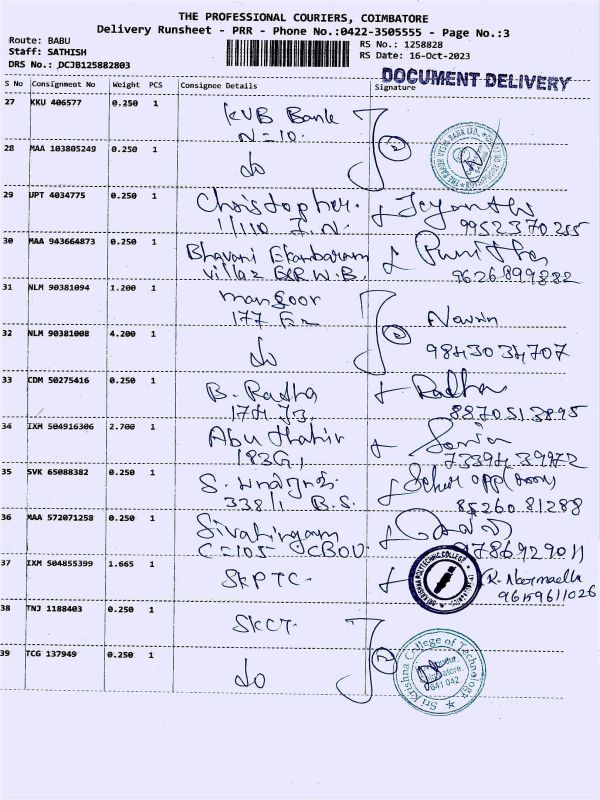 THE PROFESSIONAL COURIERS, COIMBATORE
Delivery Runsheet - PRR - Phone No.:0422-3505555 - Page No.:3
Route: BABU
Staff: SATHISH
DRS No.: DCJB125882803
RS No.: 1258828
RS Date: 16-Oct-2023
DOCUMENT DELIVERY
S No Consignment No Weight PCS Consignee Details Signature
27 KKU 406577 0.250 1 KVB Bank
N=10.
28 MAA 103805249 0.250 1 do
29 UPT 4034775 0.250 1 Christopher.
1/110 J.N.
9952370255
30 MAA 943664873 0.250 1 Bhavani Ekambaram Punitha
Villaz BSR W.B. 9626899882
31 NLM 90381094 1.200 1 mansoor
177
32 NLM 90381008 4.200 1 do 9843034707
33 CDM 50275416 0.250 1 B. Radha Radha
174 J3. 8870513895
34 IXM 504916306 2.700 1 Abu thahir
183G1 7339439972
35 SVK 65088382 0.250 1 S.
338/1 B.S. 8526081288
36 MAA 572071258 0.250 1 Sivalingam
C=105 CBOU. 9786929011
37 IXM 504855399 1.665 1 SKPTC.
9659611026
SRI KRISHNA POLYTECHNIC COLLEGE
38 TNJ 1188403 0.250 1 SKCT.
39 TCG 137949 0.250 1 do
Sri Krishna College of Technology
641 042